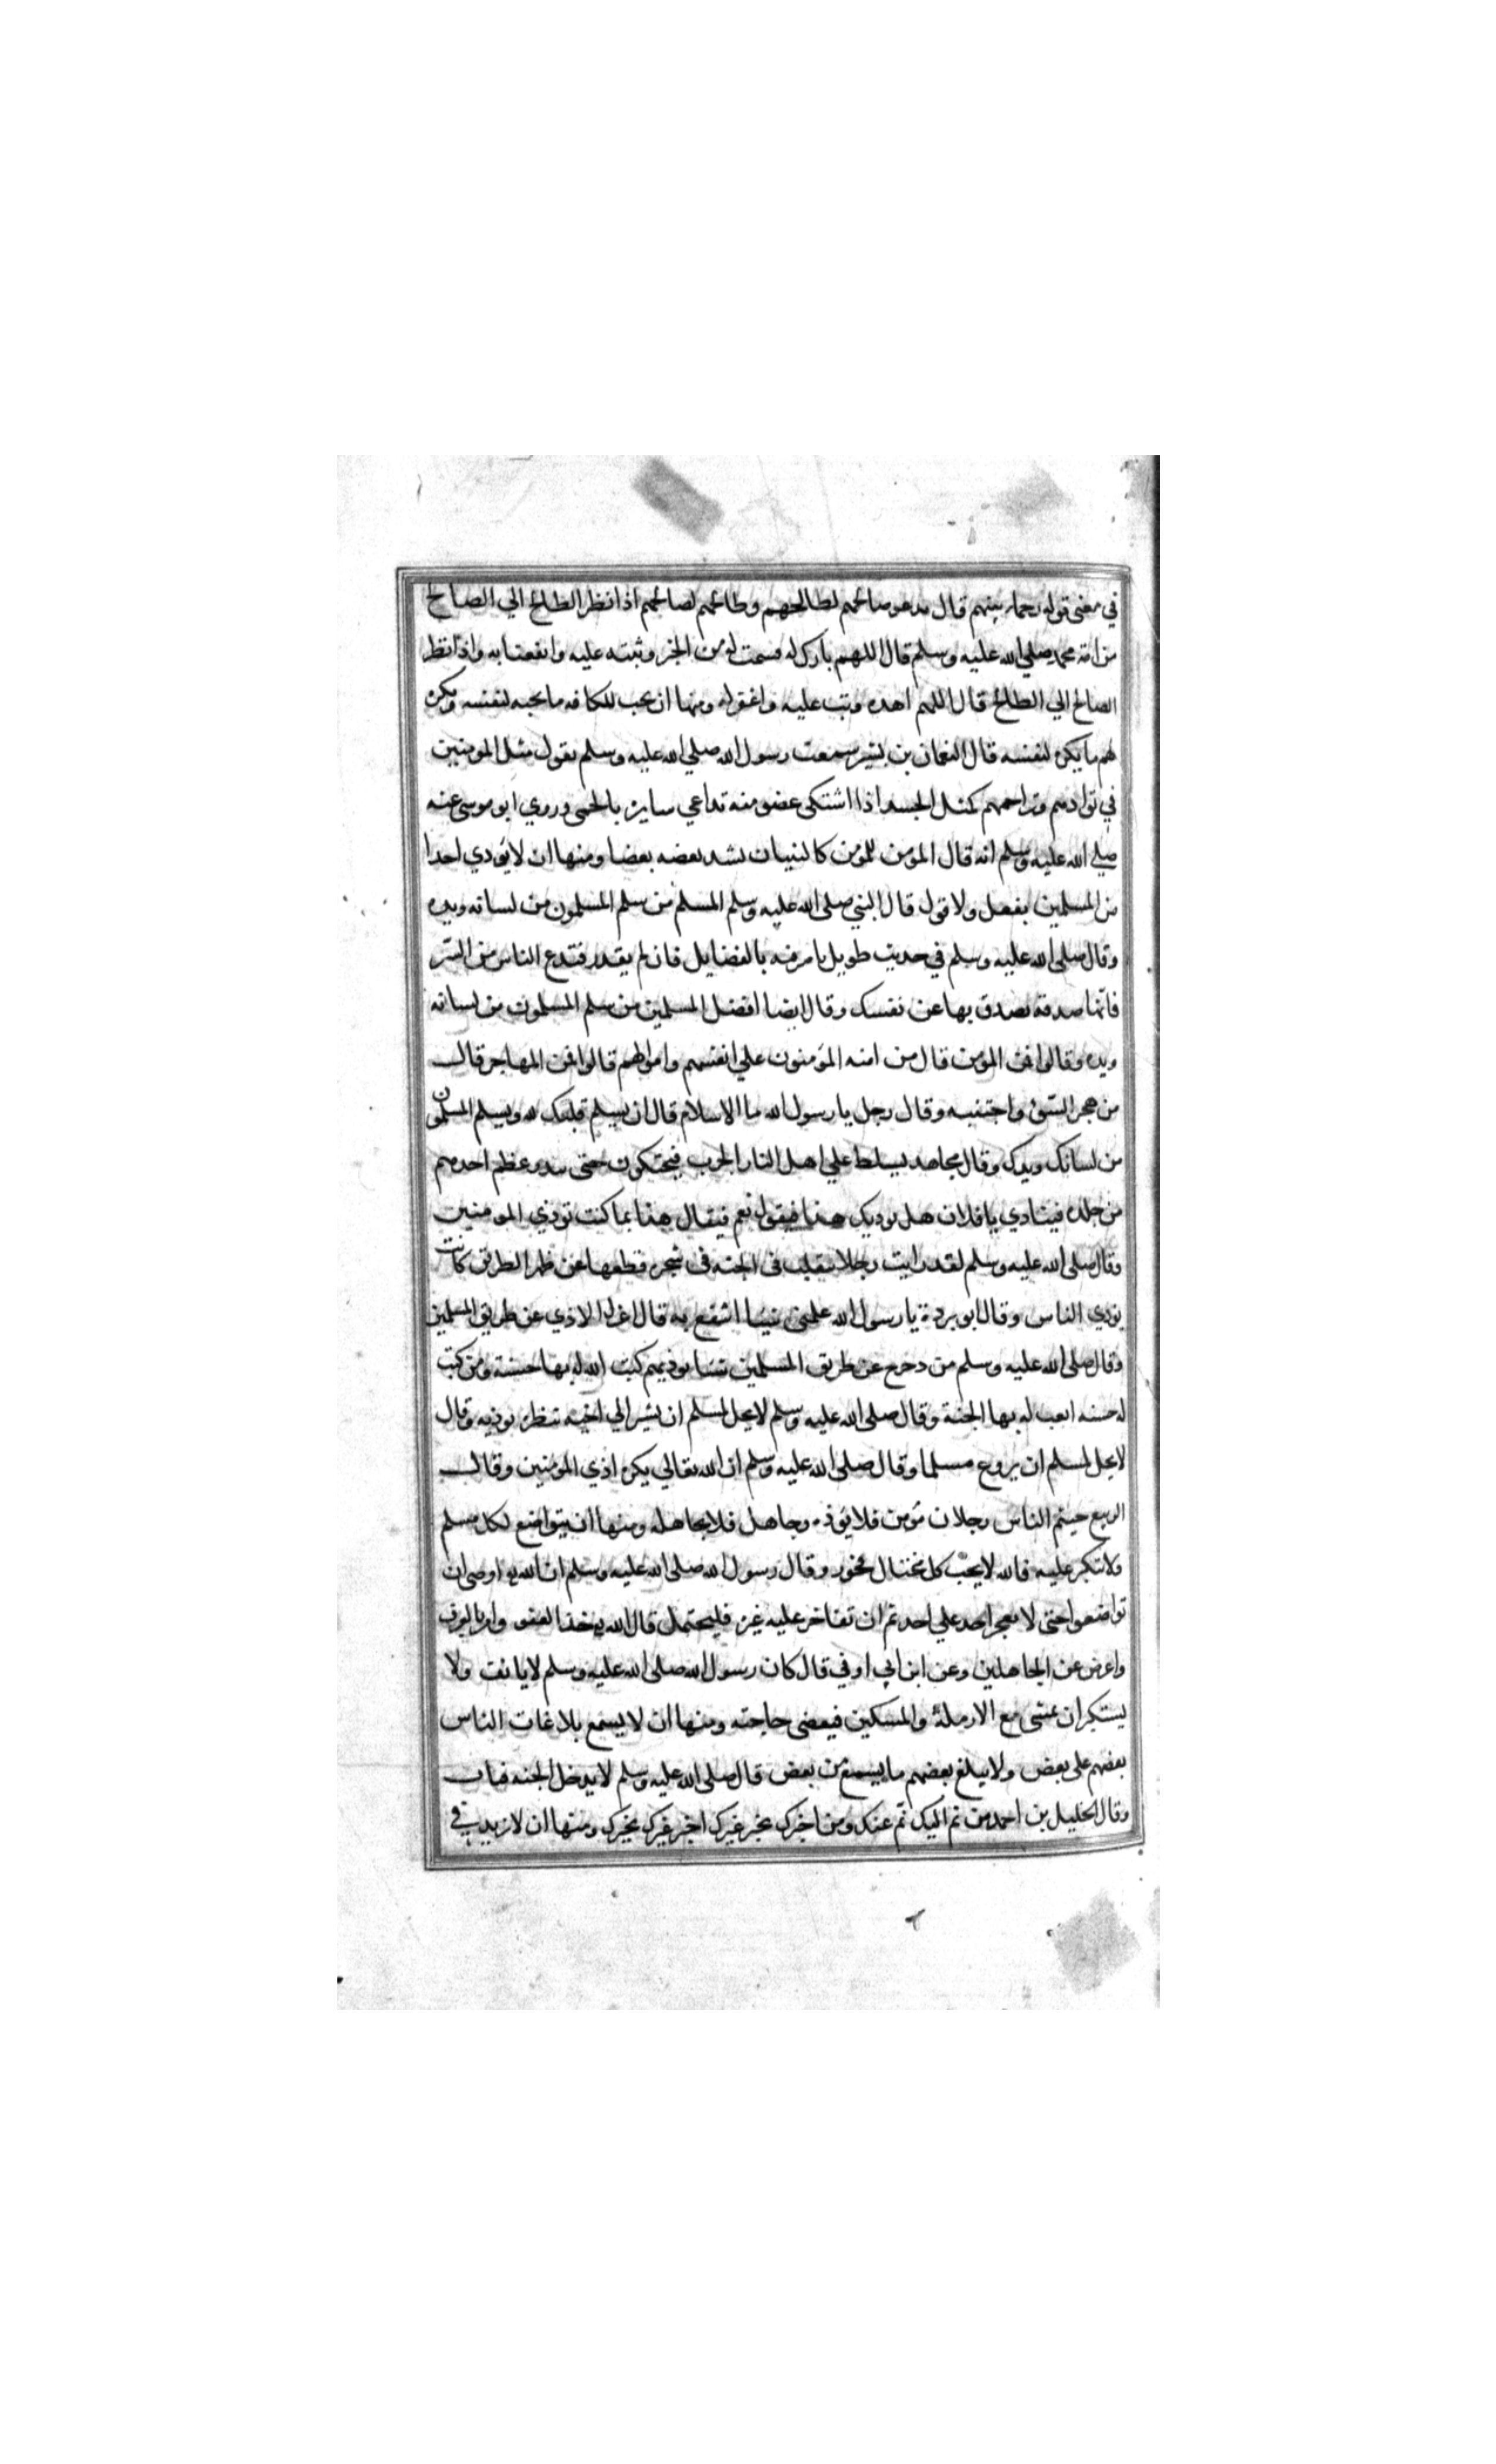 في معنى قوله رحماء بينهم قال يدعو صالحهم لطالحهم وطالحهم لصالحهم اذا نظر الطالح الي الصالح
من امة محمد صلي الله عليه وسلم قال اللهم بارك له قسمت له من الخير وثبته عليه وانفعنا به واذا نظر
الصالح الي الطالح قال اللهم اهده وتب عليه واغفر له ومنها ان يحب للكافه ما يحبه لنفسه ويكره
لهم ما يكره لنفسه قال النعمان بن بشير سمعت رسول الله صلي الله عليه وسلم يقول مثل المومنين
في توادهم وتراحمهم كمثل الجسد اذا اشتكى عضو منه تداعي سايره بالحمى وروي ابو موسى عنه
صلي الله عليه وسلم انه قال المؤمن للمؤمن كالبنيان يشد بعضه بعضا ومنها ان لا يؤدي احدا
من المسلمين بفعل ولا قول قال النبي صلى الله عليه وسلم المسلم من سلم المسلمون من لسانه ويده
وقال صلى الله عليه وسلم في حديث طويل يامر فيه بالفضايل فان لم يقدر فتدع الناس من الشر
فانها صدقة تصدق بها عن نفسك وقال ايضا افضل المسلمين من سلم المسلمون من لسانه
ويده وقالوا فمن المؤمن قال من امنه المؤمنون علي انفسهم واموالهم قالوا فمن المهاجر قال
من هجر السوء واجتنبه وقال رجل يا رسول الله ما الاسلام قال ان يسلم قلبك لله ويسلم المسلمون
من لسانك ويدك وقال مجاهد يسلط علي اهل النار الجرب فيحتكون حتى يبدو عظم احدهم
من جلده فينادي يا فلان هل يوديك هذا فيقول نعم فيقال هذا بما كنت توذي المومنين
وقال صلى الله عليه وسلم لقد رايت رجلا يتقلب في الجنه في شجره قطعها عن ظهر الطريق كانت
يؤدي الناس وقال ابو بردة يا رسول الله علمني شيئا انتفع به قال اعزل الاذي عن طريق المسلمين
وقال صلى الله عليه وسلم من دحرج عن طريق المسلمين شيئا يوذيهم كتب الله له بها حسنة ومن كتب
له حسنه اوجب له بها الجنة وقال صلى الله عليه وسلم لا يحل لمسلم ان يشير الي اخيه بنظر يوذيه وقال
لا يحل لمسلم ان يروع مسلما وقال صلى الله عليه وسلم ان الله تعالي يكره اذي المؤمنين وقال
الربيع خيثم الناس رجلان مؤمن فلا تؤذه وجاهل فلا تجاهله ومنها ان يتواضع لكل مسلم
ولا يتكبر عليه فالله لا يحب كل مختال فخور وقال رسول الله صلى الله عليه وسلم ان الله اوصى ان
تواضعوا حتى لا يفخر احد علي احد ثم ان تفاخر عليه غيره فليحتمل قال الله خذ العفو وامر بالعرف
واعرض عن الجاهلين وعن ابن ابي اوفي قال كان رسول الله صلى الله عليه وسلم لا يانف ولا
يستكبر ان يمشى مع الارملة والمسكين فيقضى حاجته ومنها ان لا يسمع بلاغات الناس
بعضهم على بعض ولا يبلغ بعضهم ما يسمع من بعض قال صلى الله عليه وسلم لا يدخل الجنه قتات
وقال الخليل بن احمد من نم اليك نم عنك ومن اخبرك بخبر غيرك اخبر غيرك بخبرك ومنها ان لا يزيد في